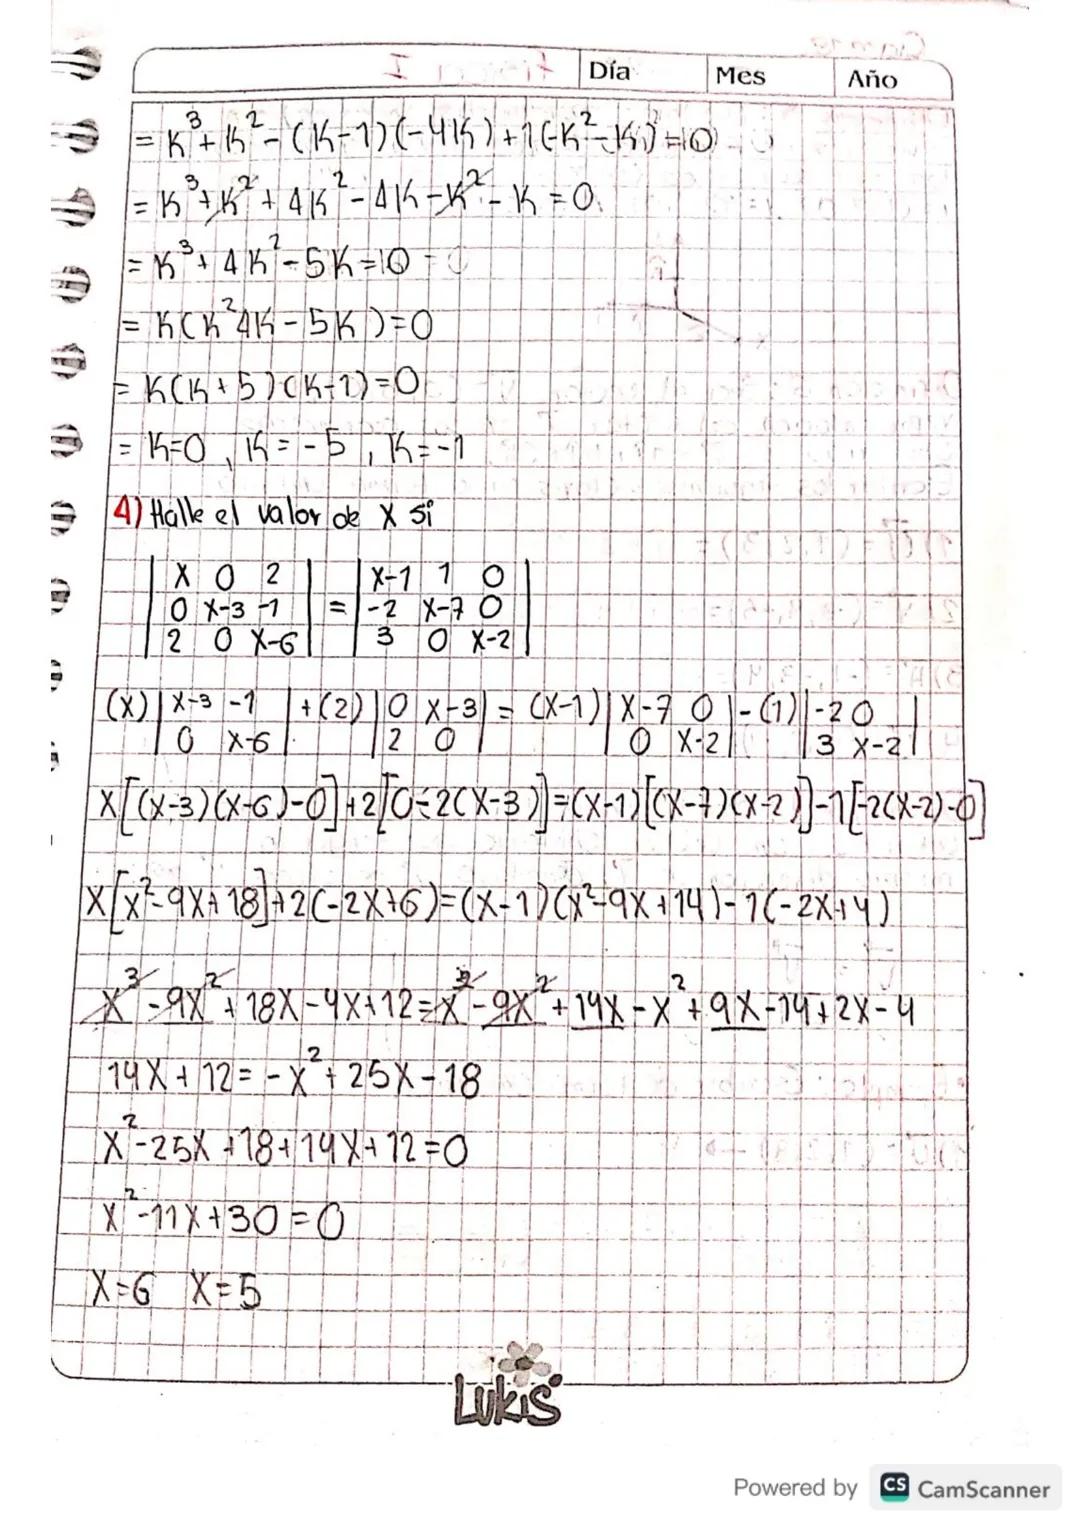 Día Mes Año
= K³ + K² - (K-1)(-4K) + 1(-K² - K) = 0
= K³ + K² + 4K² - 4K - K² - K = 0
= K³ + 4K² - 5K = 0
= K(K² 4K - 5K) = 0
= K(K + 5)(K-1) = 0
= K=0, K = -5, K = -1
4) Halle el valor de X si
| X 0 2 | = | X-1 1 0 |
| 0 X-3 -1 | | -2 X-7 0 |
| 2 0 X-6 | | 3 0 X-2 |
(X) | X-3 -1 | + (2) | 0 X-3 | = (X-1) | X-7 0 | - (1) | -2 0 |
| 0 X-6 | | 2 0 | | 0 X-2 | | 3 X-2 |
X[(X-3)(X-6)-0]+2[0-2(X-3)]=(X-1)[(X-7)(X-2)]-1[-2(X-2)-0]
X[X²-9X+18]+2(-2X+6)=(X-1)(X²-9X+14)-1(-2X+4)
X³-9X²+18X-4X+12=X³-9X²+14X-X²+9X-14+2X-4
14X+12=-X²+25X-18
X²-25X+18+14X+12=0
X²-11X+30=0
X=6 X=5
LUKIS
Powered by CS CamScanner